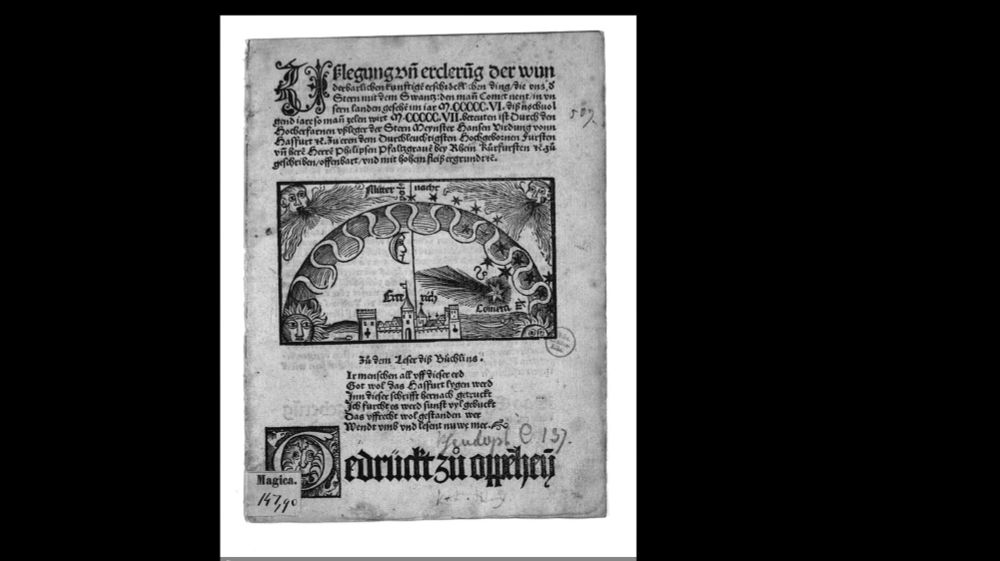 Vßlegung vñ erclerũg der wun
derbarlichen kunftigẽ erschröcklichen ding/die vns d̕
Stern mit dem Swantz: den man Comet nent/in vn
sern landen geschẽ im iar M.CCCCC.VI. diß nochuol
gend iare so man zelen wirt M.CCCCC.VII. beteuten ist Durch den
Hocherfarnen vßleger der Stern Meynster Hansen Virdung vonn
Hassfurt ⁊c. Zu eren dem Durchleuchtigsten Hochgebornen Fursten
vñ herẽ Herrẽ Philipsen Pfaltzgrauẽ bey Rhein Kůrfursten ⁊c. zů
geschriben/offenbart/vnd mit hohem fleiß ergrundt ⁊c.
Mitter nacht
Ertt rich
Cometa
Zů dem Leser diß Büchlins.
Ir menschen all vff dieser erd
Got wol das Hassfurt lygen werd
Inn dieser schrifft hernach getruckt
Ich furcht es werd sunst vyl gebuckt
Das vffrecht wol gestanden wer
Wendt vmb vnd lesent nuwe mer.
C 137.
Gedrückt zů oppẽheỹ
Magica.
147,90